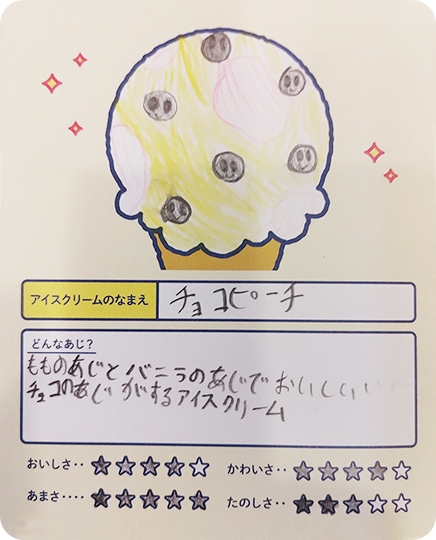 アイスクリームのなまえ
チョコピーチ
どんなあじ?
もものあじとバニラのあじでおいしい
チョコのあじがするアイスクリーム
おいしさ‥ ★★★★☆
かわいさ‥ ★★★★☆
あまさ‥‥ ★★★★★
たのしさ‥ ★★★☆☆